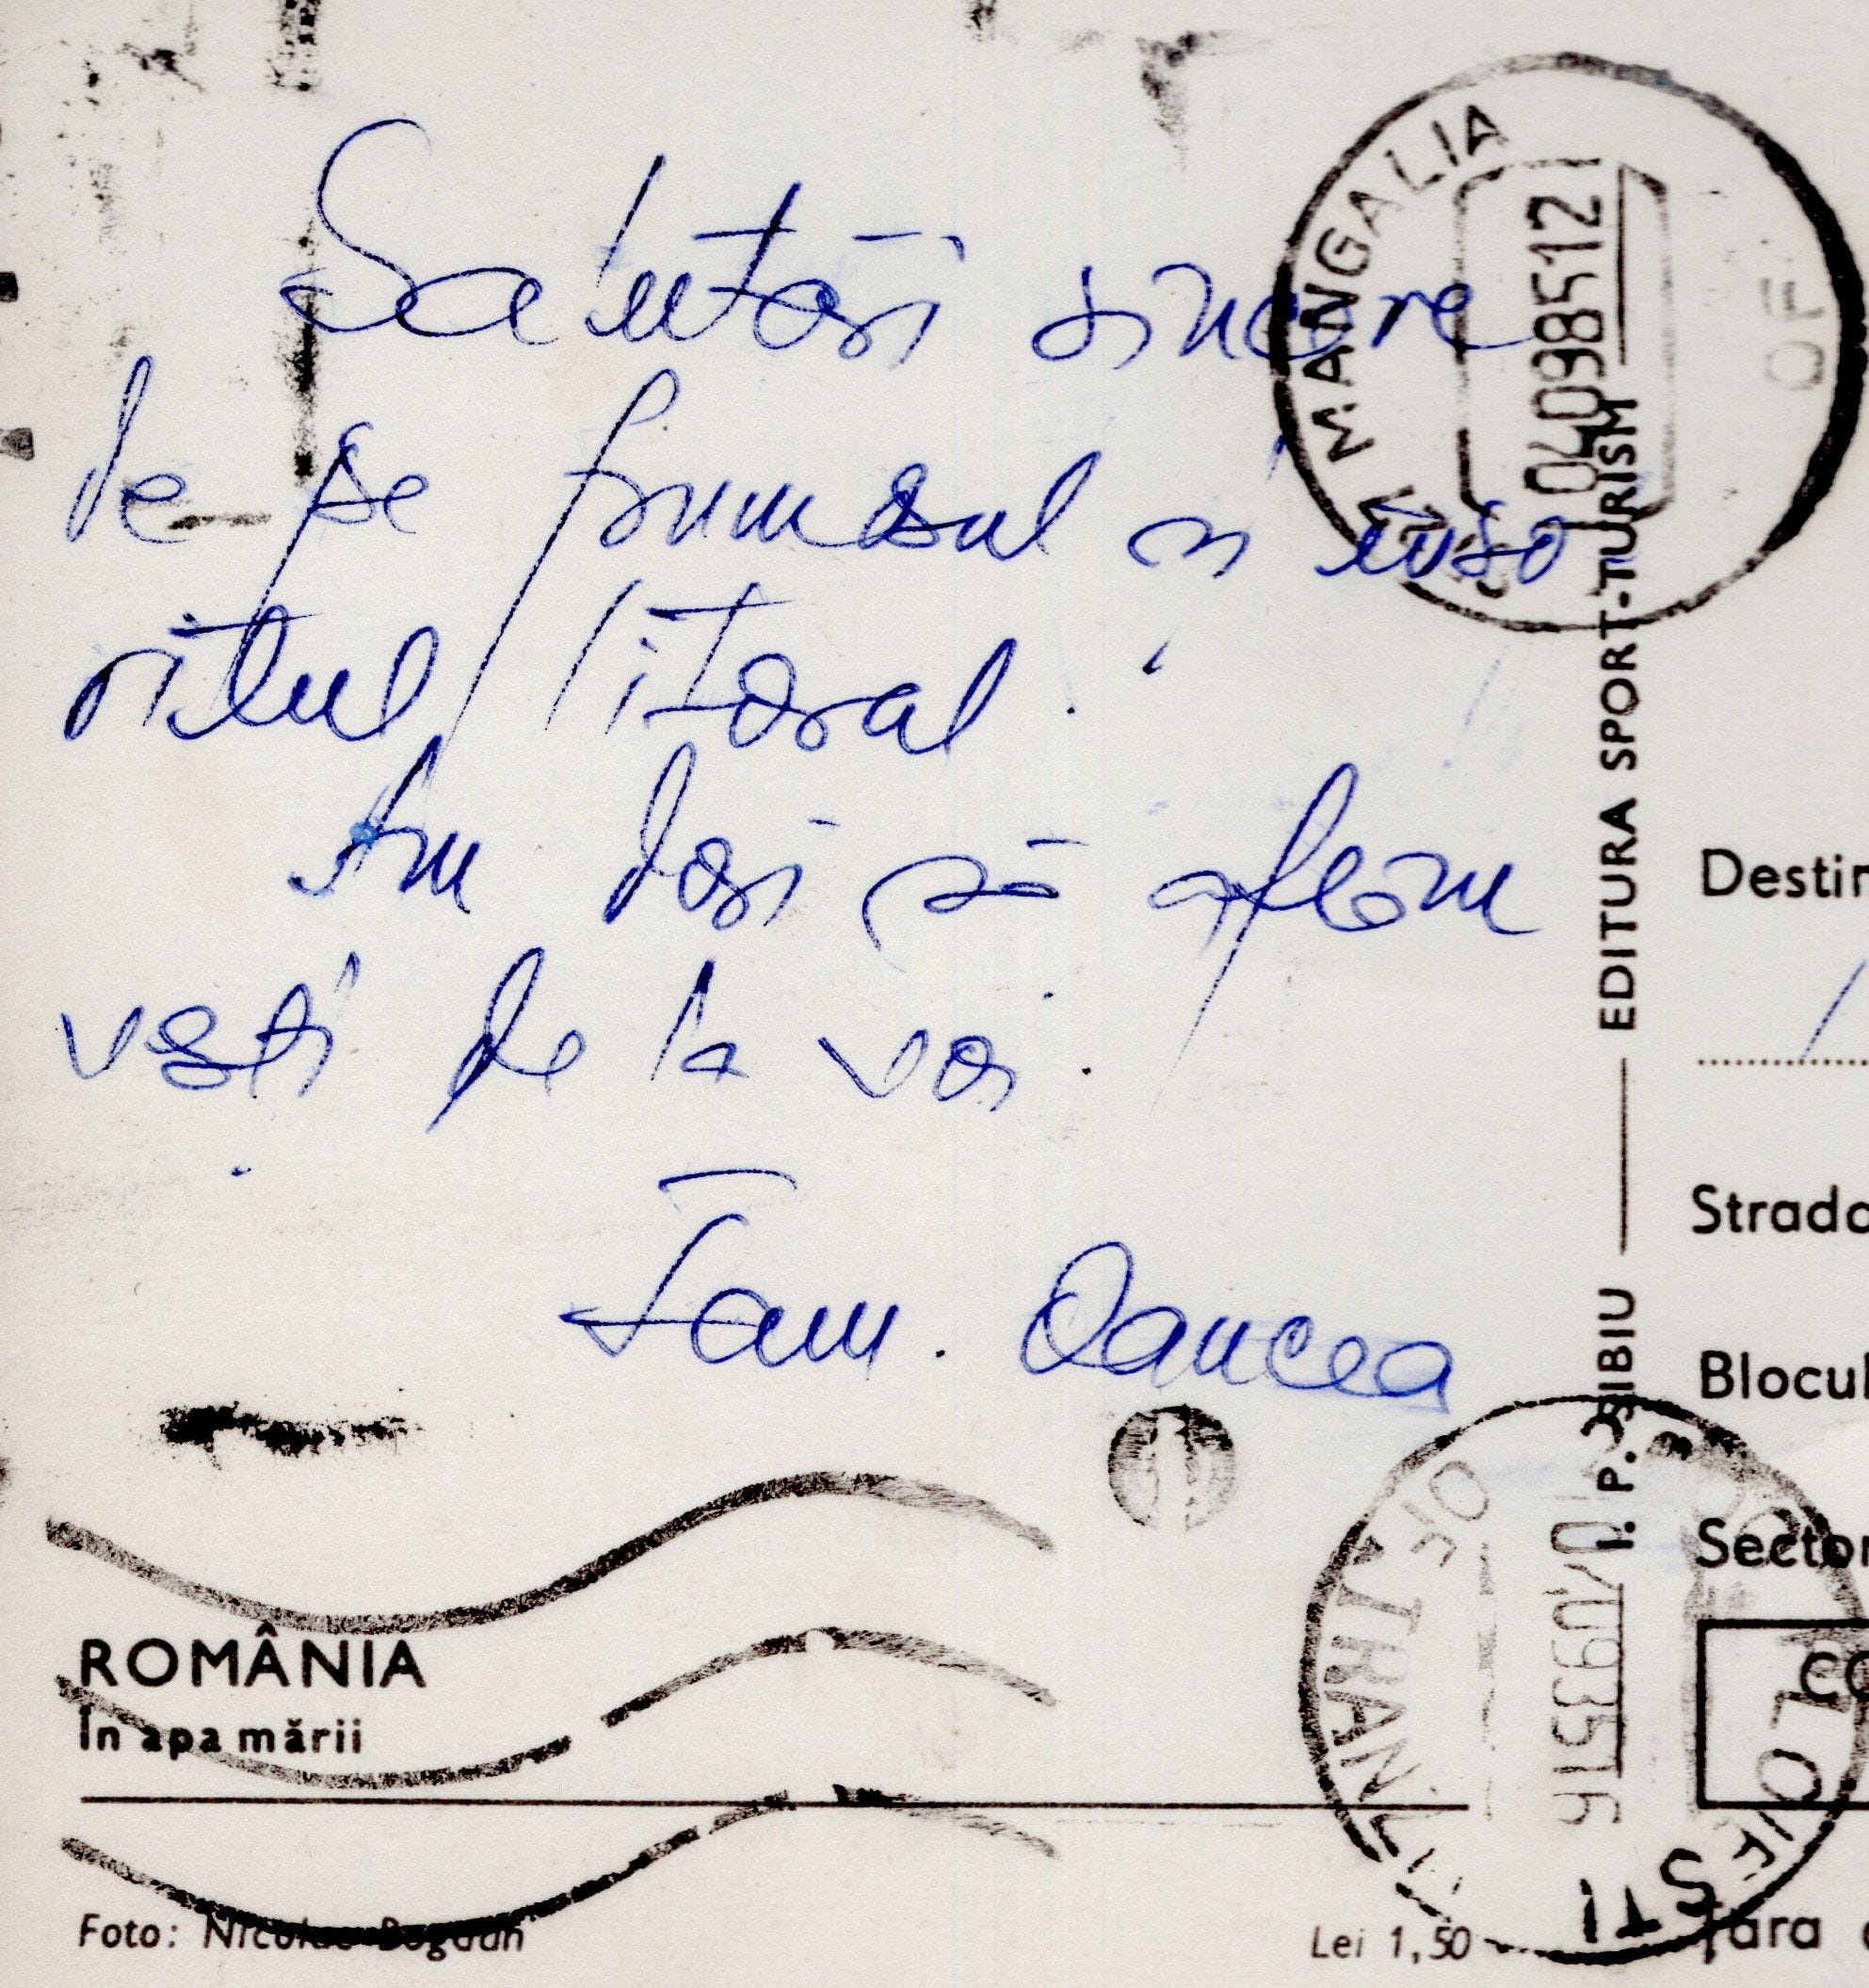 Salutări sincere
de pe frumosul și înso
ritul litoral.
Am dori să aflăm
vești de la voi.
Fam. Oancea
MANGALIA
04098512
OF
EDITURA SPORT-TURISM — I. P. SIBIU
Destin
Strada
Blocul
Sector
ROMÂNIA
În apa mării
OF
TRANZIT
PLOIEȘTI
CO
Foto: Nicolae Bogdan
Lei 1,50
Țara